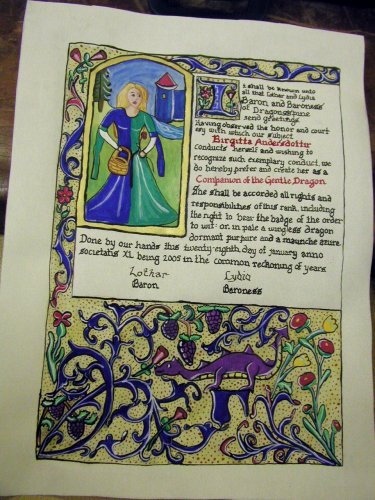 It shall be known unto
all that Lothar and Lydia
Baron and Baroness
of Dragonsspine
send greetings.
Having observed the honor and court
esy with which our subject
Birgitta Andersdottir
conducts herself and wishing to
recognize such exemplary conduct, we
do hereby prefer and create her as a
Companion of the Gentle Dragon.
She shall be accorded all rights and
responsibilities of this rank, including
the right to bear the badge of the order
to wit: on in pale a wingless dragon
dormant purpure and a maunche azure.
Done by our hands this twenty-eighth day of January anno
societatis XL being 2005 in the common reckoning of years
Lothar Lydia
Baron Baroness